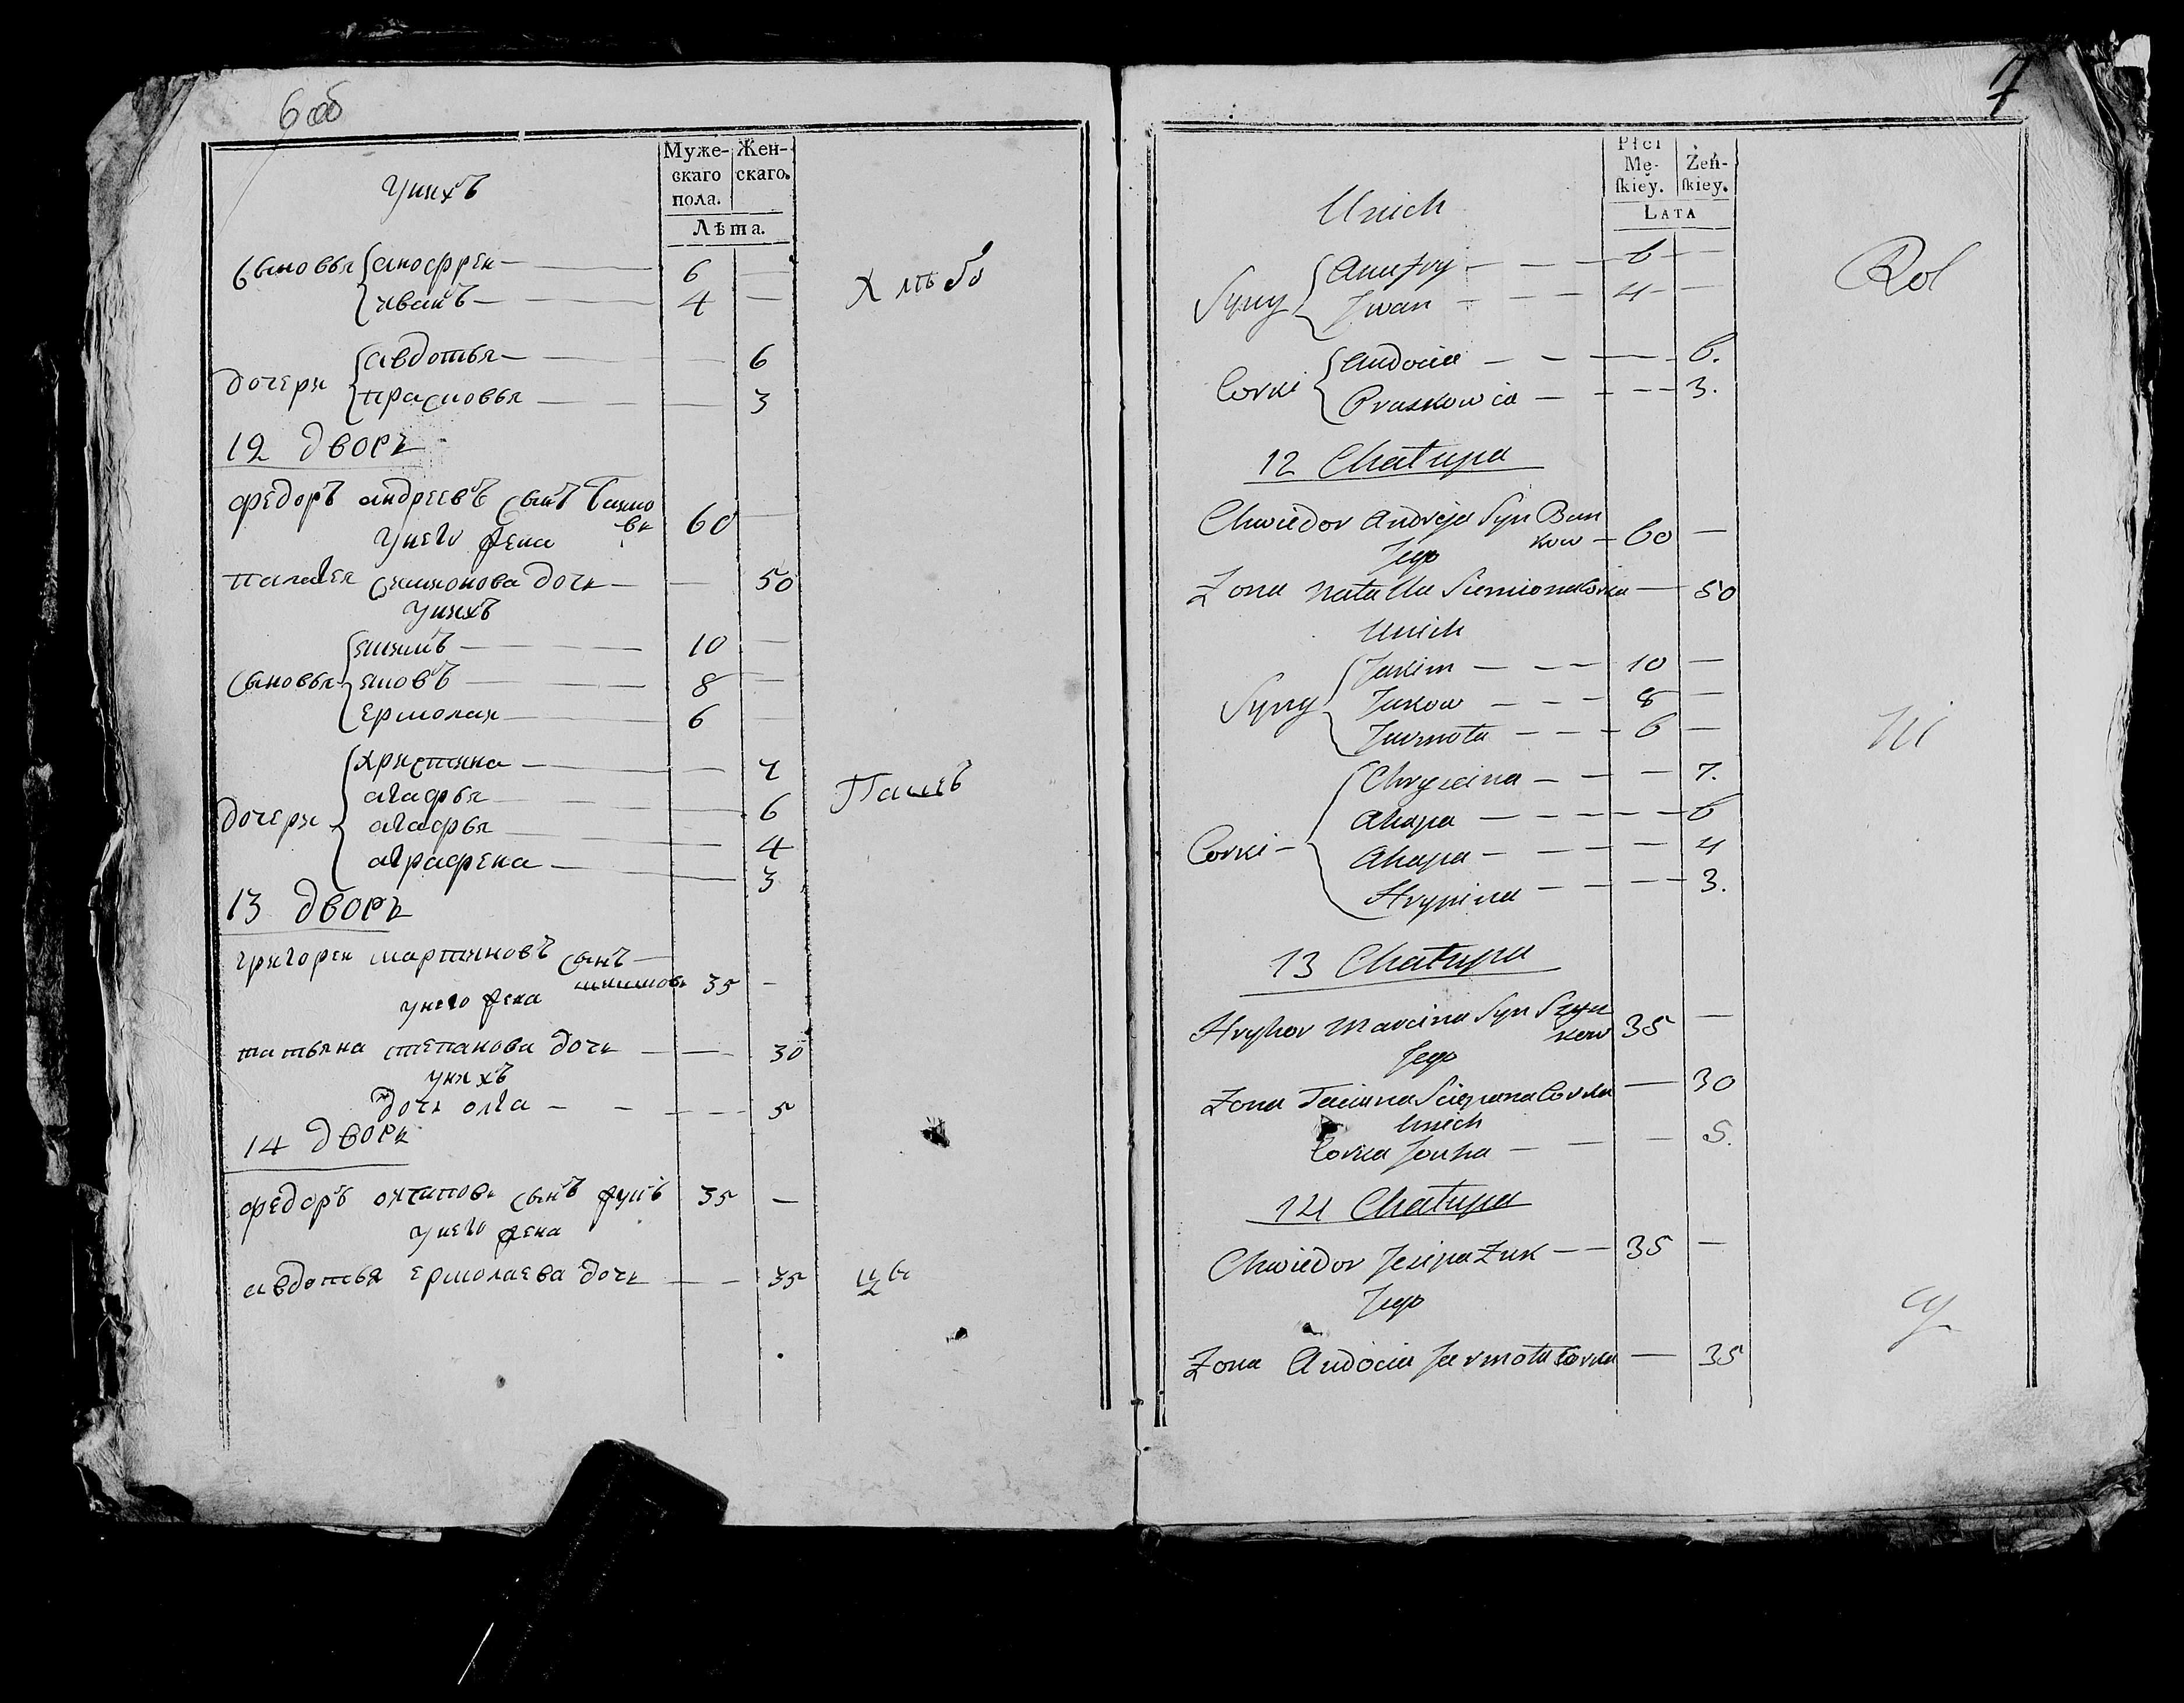 6 об
Муже-
скаго
пола.
Жен-
скаго.
Лѣта.
У нихъ
Сыновья
анофрей — 6 —
иванъ — 4 —
Хлѣбо
дочери
авдотья — — 6
прасковья — — 3
12 дворъ
федоръ андреевъ сынъ Банко
въ 60 —
у него жена
наталья симионова дочь — — 50
у нихъ
сыновья
якимъ — 10 —
яковъ — 8 —
ермолаи — 6 —
дочери
христина — — 7
агафья — — 6
агафья — — 4
аграфена — — 3
Пашеъ
13 дворъ
григореи мартиновъ сынъ —
35 —
у него жена
татьяна степанова дочь — — 30
у нихъ
дочь олга — — 5
14 дворъ
федоръ осиповъ сынъ жукъ 35 —
у него жена
авдотья ермолаева дочь — — 35
цъ
7
Płci
Mę-
ſkiey.
Żeń-
ſkiey.
LATA
Unich
Syny
Anufry — 6 —
Jwan — 4 —
Rol
Corki
Audocia — — 6.
Praskowia — — 3.
12 Chatupa
Chwiedor Andreja Syn Ban
kow — 60 —
Jego
Zona Natalla Siemiona Corka — 50
Unich
Syny
Jakim — 10 —
Jakow — 8 —
Jarmoła — 6 —
ni
Corki —
Chryscina — — 7.
Ahapa — — 6
Ahapa — — 4
Hrypina — — 3.
13 Chatupa
Hryhor Marcina Syn Szyn
kow 35 —
Jego
Zona Taciana Sciepana Corka — 30
Unich
Corka Jouha — — 5.
14 Chatupa
Chwiedor Jesipa Zuk — 35 —
Jego
cy
Zona Audocia Jarmoła Corka — 35